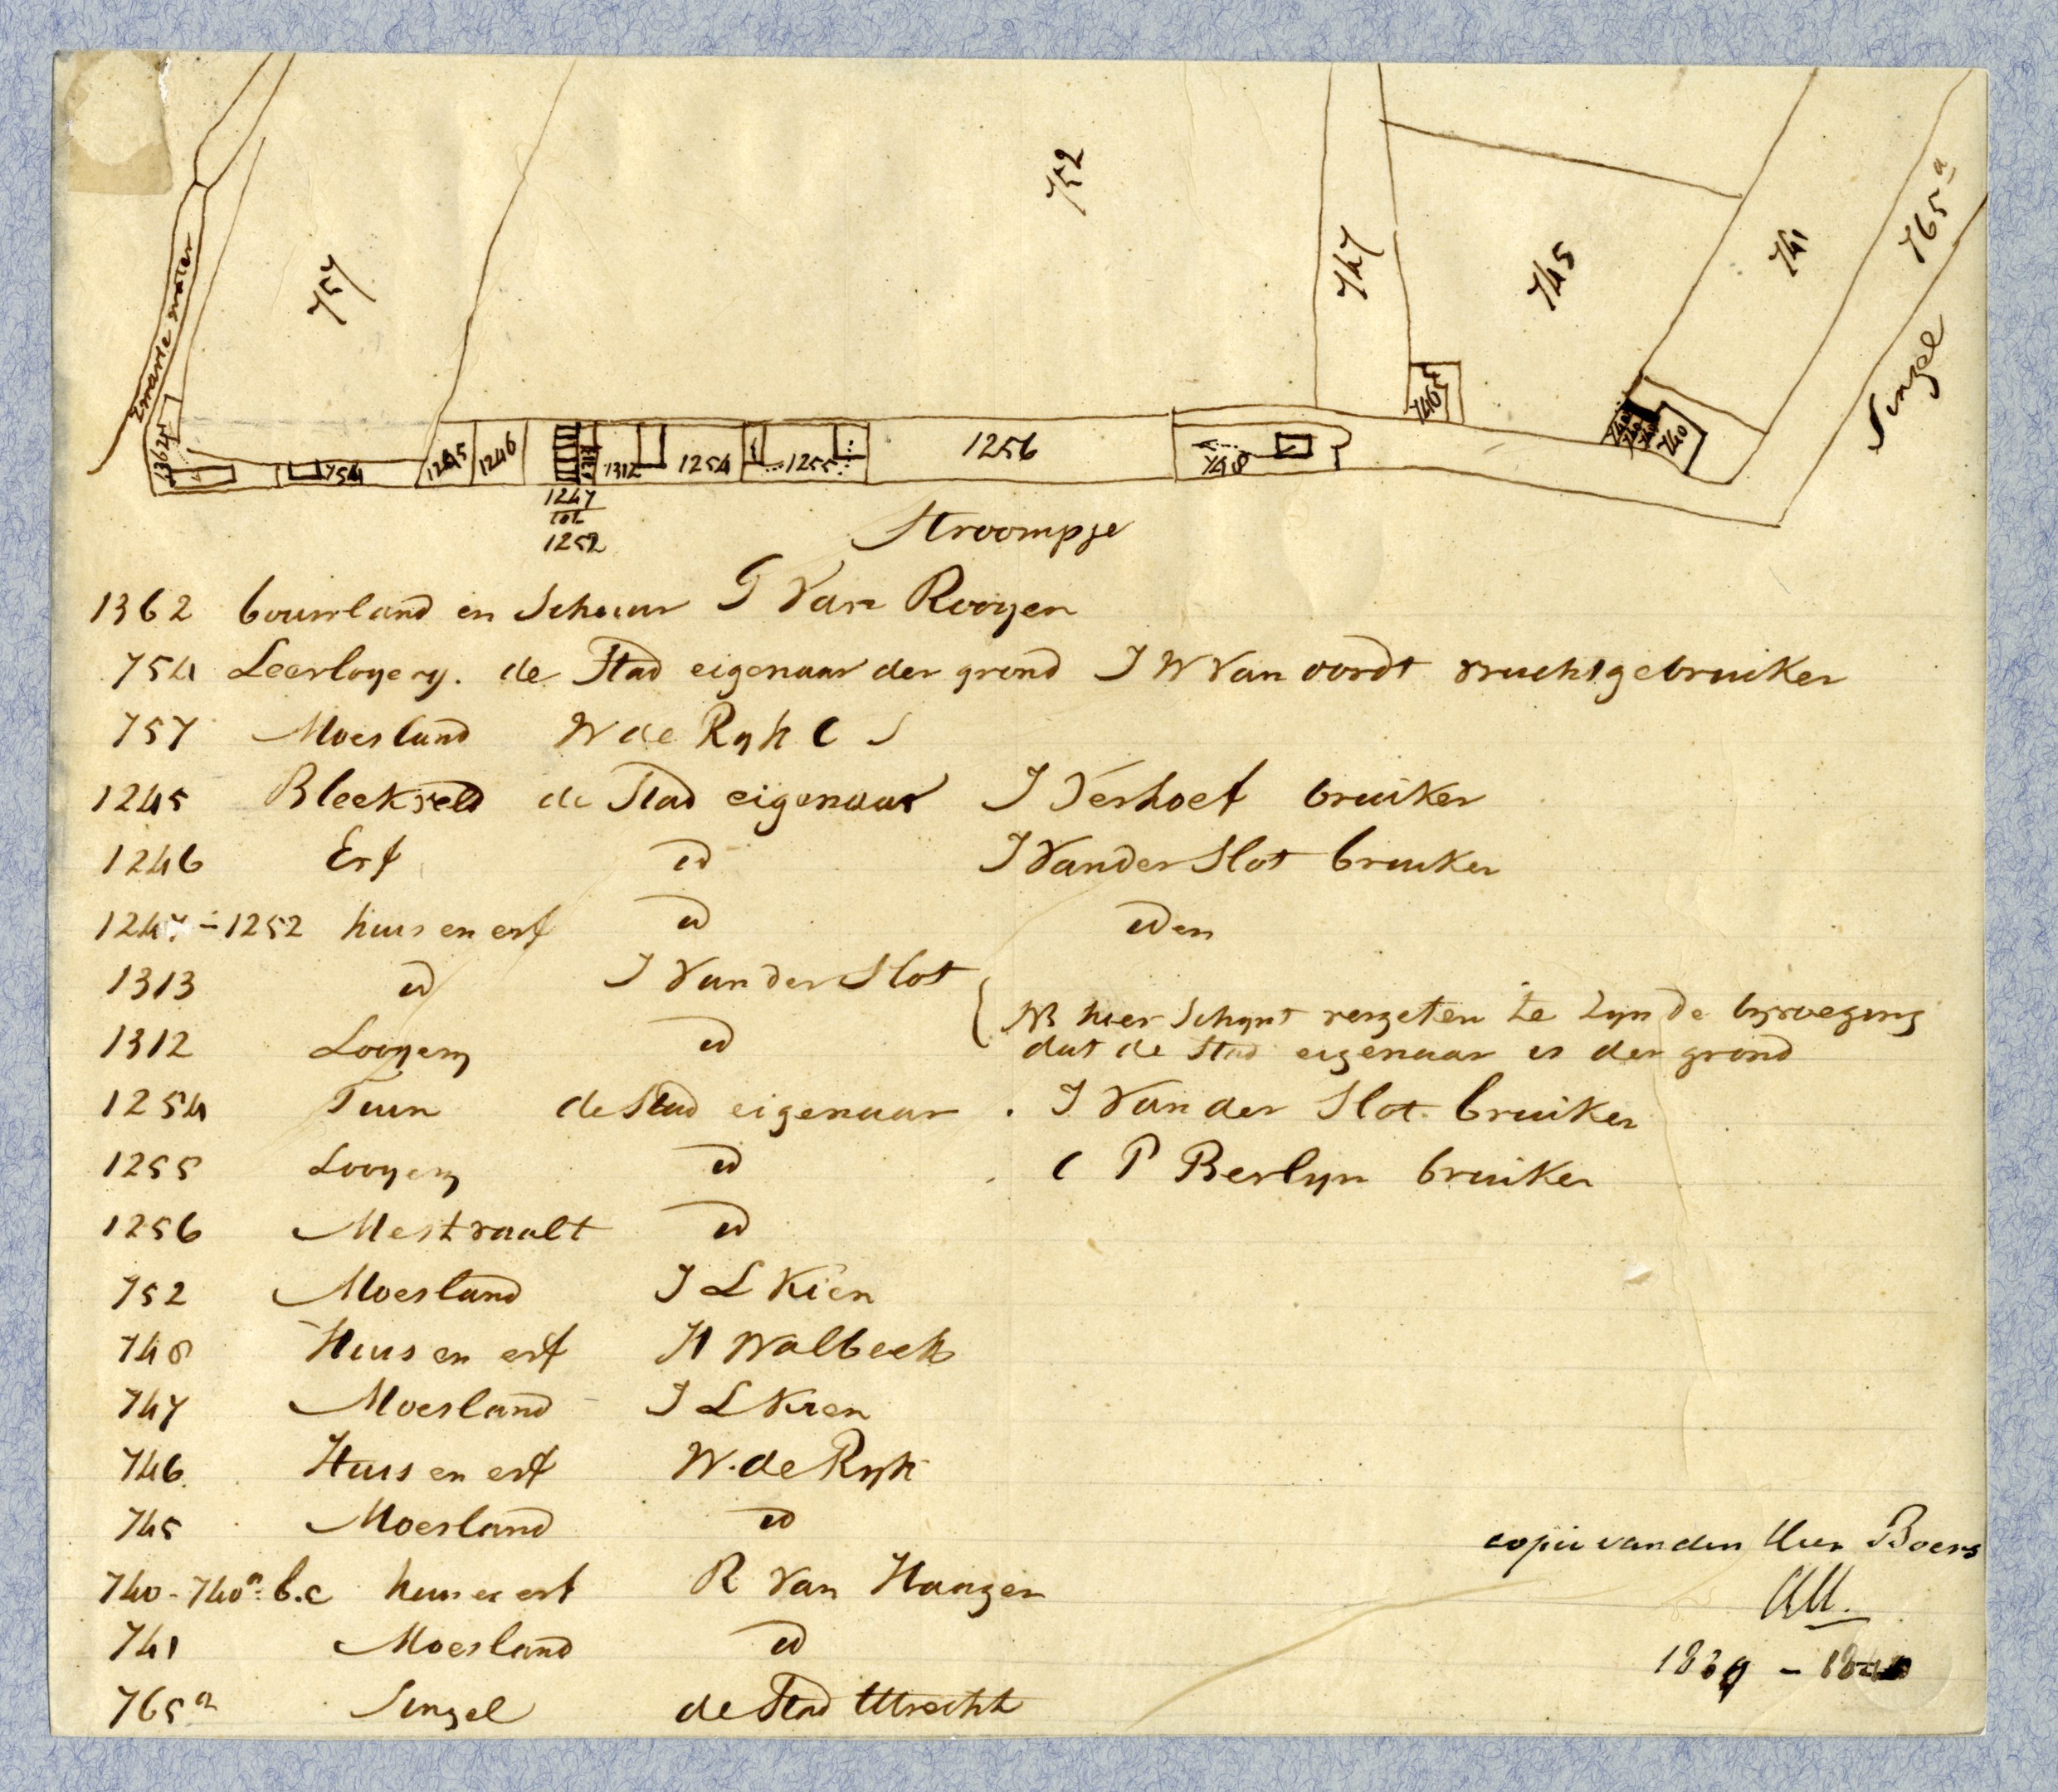 752
757
747
745
741
765a
Zwarte water
Singel
1362
754
1245
1246
1313
1312
1254
1255
1256
748
746
740
1247
tot
1252
Stroompje
1362 bouwland en Schuur G Van Rooyen
754 Leerlooyery. de Stad eigenaar der grond J W Van oordt vruchtgebruiker
757 Moesland W de Ryk C S
1245 Bleekveld de Stad eigenaar J Verhoef bruiker
1246 Erf id J Van der Slot bruiker
1247 - 1252 huis en erf id idem
1313 id J Van der Slot
1312 Looyery id
NB hier Schynt vergeten te zyn de byvoeging
dat de Stad eigenaar is der grond
1254 Tuin de Stad eigenaar . J Van der Slot bruiker
1255 Looyery id C P Berlyn bruiker
1256 Mestvaalt id
752 Moesland J L Kien
748 Huis en erf H Walbeek
747 Moesland J L Kien
746 Huis en erf W. de Ryk
745 Moesland id
740 - 740a. b. c huis en erf R Van Haagen
741 Moesland id
765a Singel de Stad Utrecht
copie van den Heer Boers
1839 -